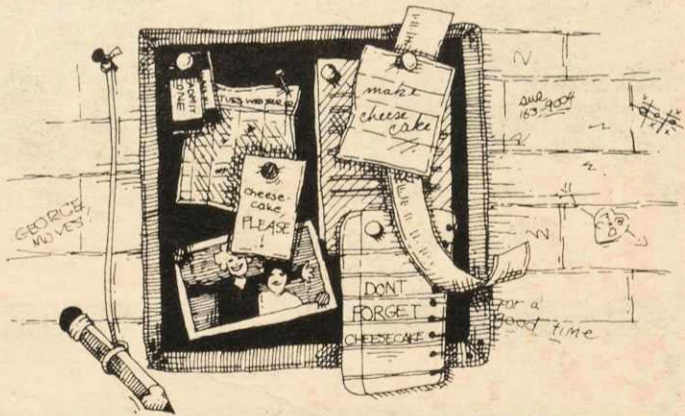 ADMIT
ONE
TUES WED THUR FR
make
cheese
cake
cheese-
cake,
PLEASE
!
DONT
FORGET
CHEESECAKE
GEORGE
MOVES
sue
163-9004
for a
good time